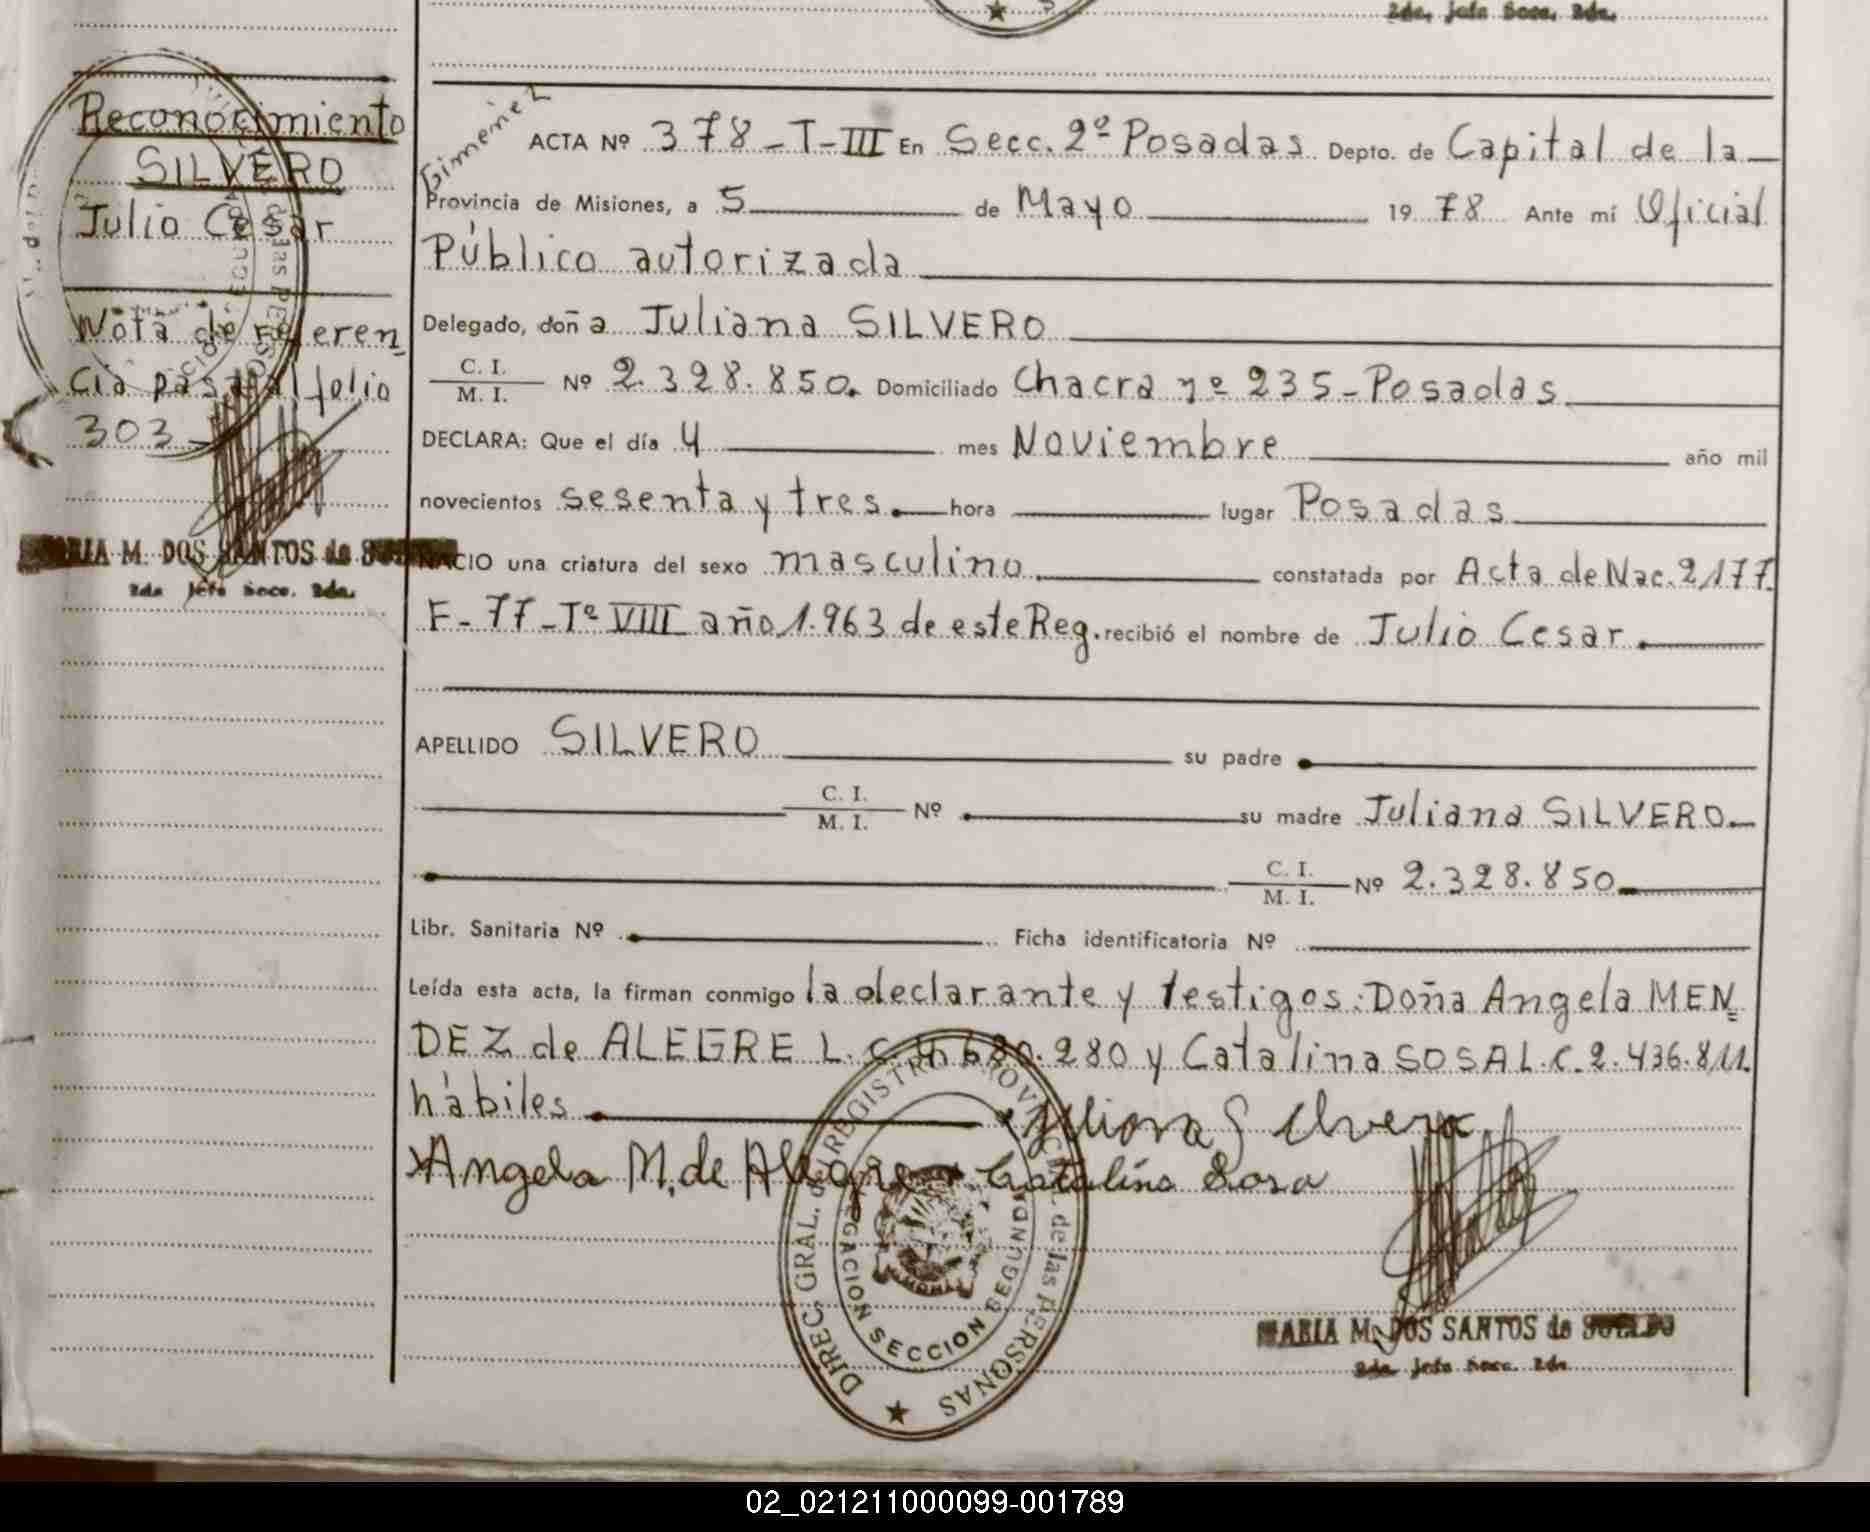 2da. Jefe Secc. 2da.
Reconocimiento
SILVERO
Julio Cesar
Nota de referen
cia pasa al folio
303
MARIA M. DOS SANTOS de SUELDO
2da Jefe Secc. 2da.
Gimenez
ACTA Nº 378-T-III En Secc. 2º Posadas Depto. de Capital de la
Provincia de Misiones, a 5 de Mayo 1978 Ante mí Oficial
Público autorizada
Delegado, doña Juliana SILVERO
C. I. / M. I. Nº 2.328.850. Domiciliado Chacra nº 235-Posadas
DECLARA: Que el día 4 mes Noviembre año mil
novecientos sesenta y tres. hora lugar Posadas
NACIO una criatura del sexo masculino. constatada por Acta de Nac. 2177.
F-77-Tº VIII año 1.963 de este Reg. recibió el nombre de Julio Cesar.
APELLIDO SILVERO su padre
C. I. / M. I. Nº su madre Juliana SILVERO
C. I. / M. I. Nº 2.328.850
Libr. Sanitaria Nº Ficha identificatoria Nº
Leída esta acta, la firman conmigo la declarante y testigos: Doña Angela MEN
DEZ de ALEGRE L.C. 4.680.280 y Catalina SOSA L.C. 2.436.811.
hábiles
Juliana Silvero
Angela M. de Alegre Catalina Sosa
DIREC. GRAL. del REGISTRO PROVINCIAL de las PERSONAS
DELEGACION SECCION SEGUNDA
MARIA M. DOS SANTOS de SUELDO
2da Jefe Secc. 2da
02_021211000099-001789